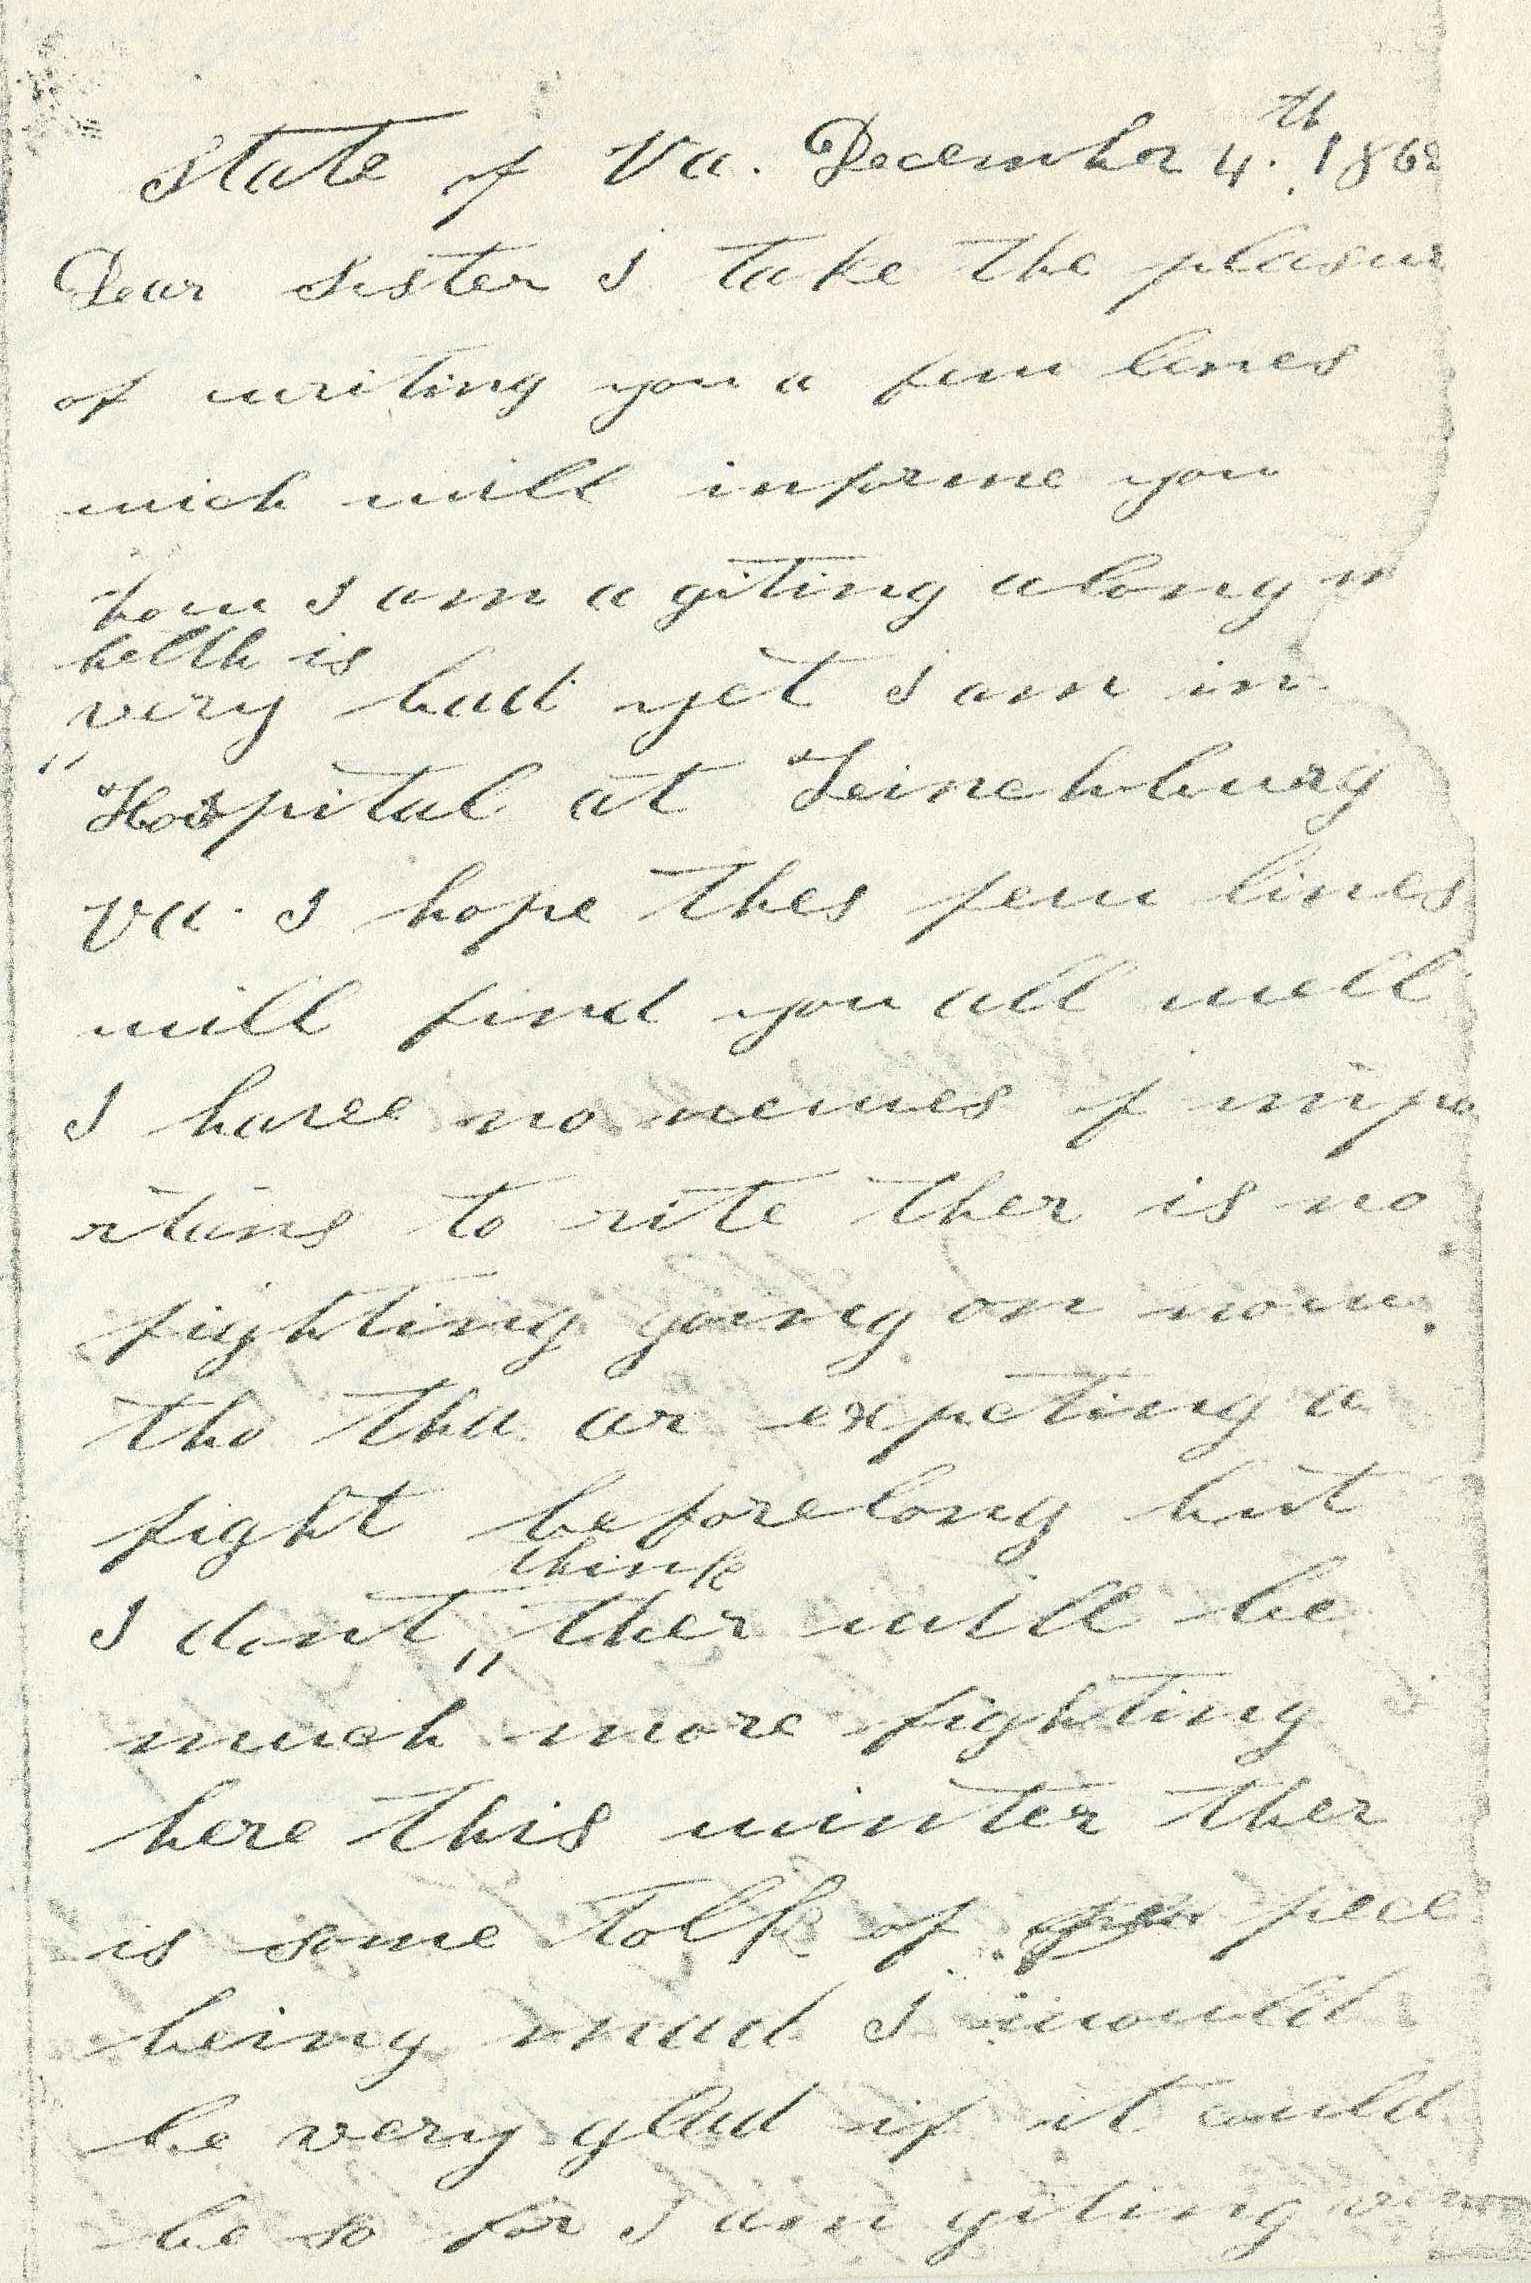 State of Va. December 4.th 1862
Dear Sister I take the pleasur
of writing you a few lines
wich will informe you
how I am a giting along m
helth is
very bad yet I am in
" Hospital at Leinchburg
Va. I hope thes few lines
will find you all well
I have no newes of impo
rtans to rite ther is no
fighting going on now.
tho tha ar expeting a
fight beforelong but
think
I dont " ther will be
much more fighting
here this winter ther
is some tolk of pece
being mad I would
be very glad if it could
be so for I am giting